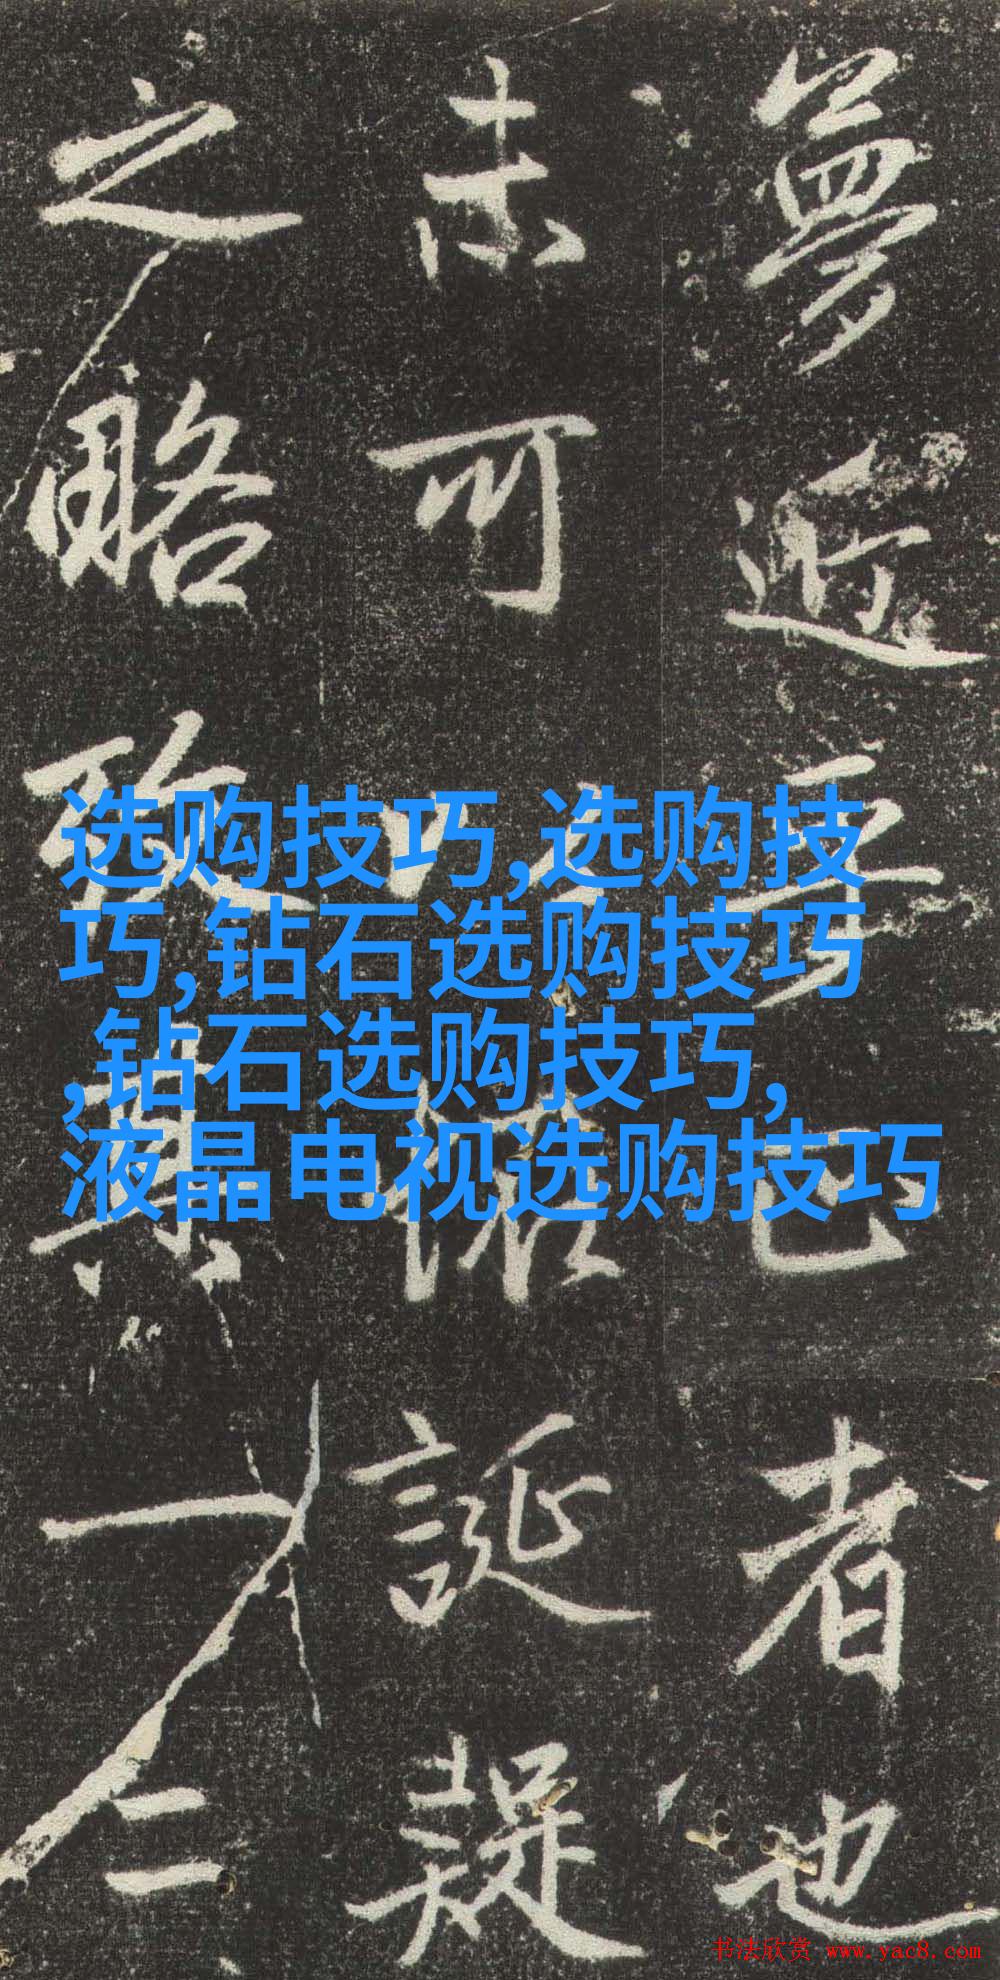 夢近乎已者也
未可以誕疑
之略致其一二
选购技巧,选购技
巧,钻石选购技巧
,钻石选购技巧,
液晶电视选购技巧
书法欣赏 www.yac8.com